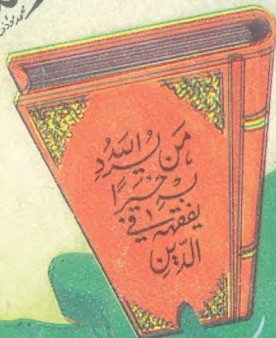 مَن يُّرِدِ اللهُ
بِهٖ خَيْرًا
يُفَقِّهْهُ فِي
الدِّينِ